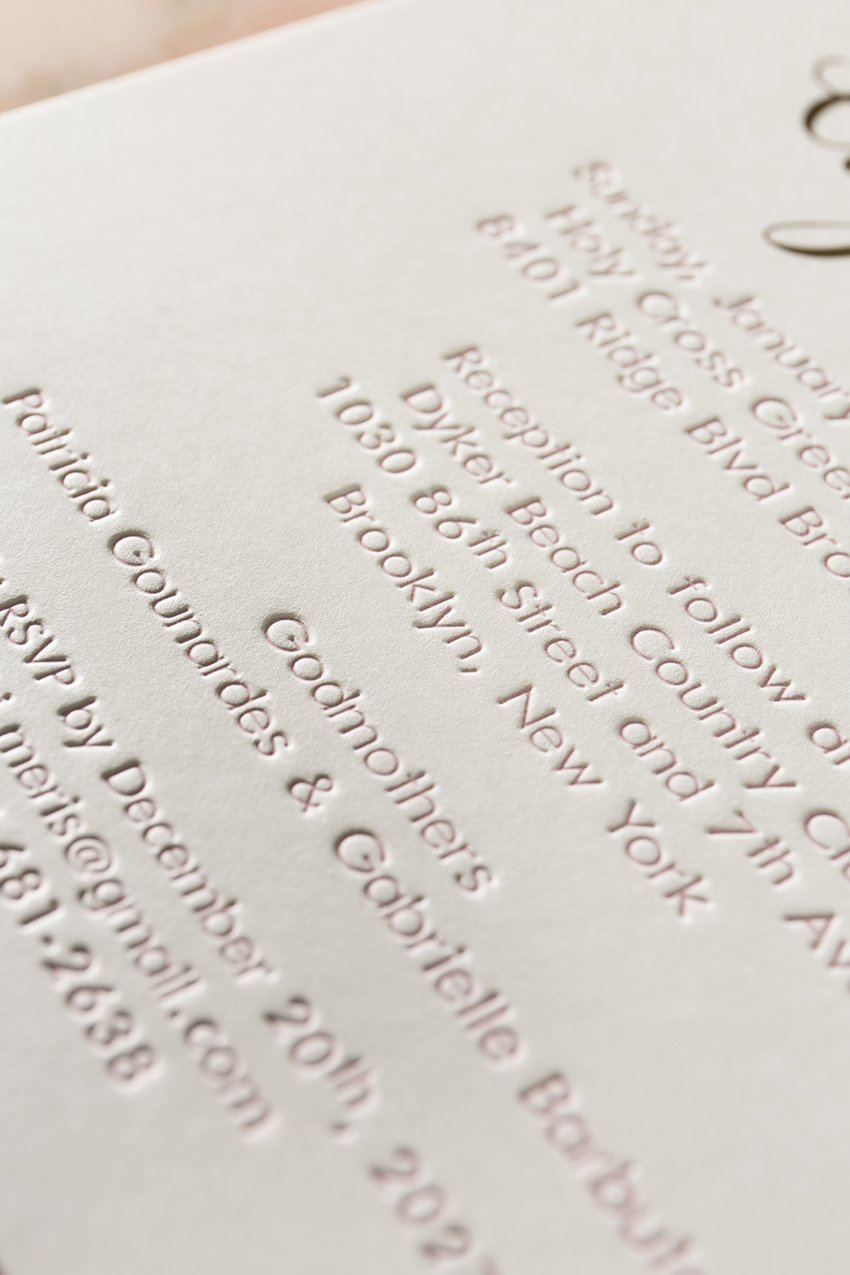 Sunday, January
Holy Cross Greek
8401 Ridge Blvd
Reception to follow at
Dyker Beach Country
1030 86th Street and 7th
Brooklyn, New York
Godmothers
Patricia Gounardes & Gabrielle
RSVP by December 20th,
meris@gmail.com
681.2638